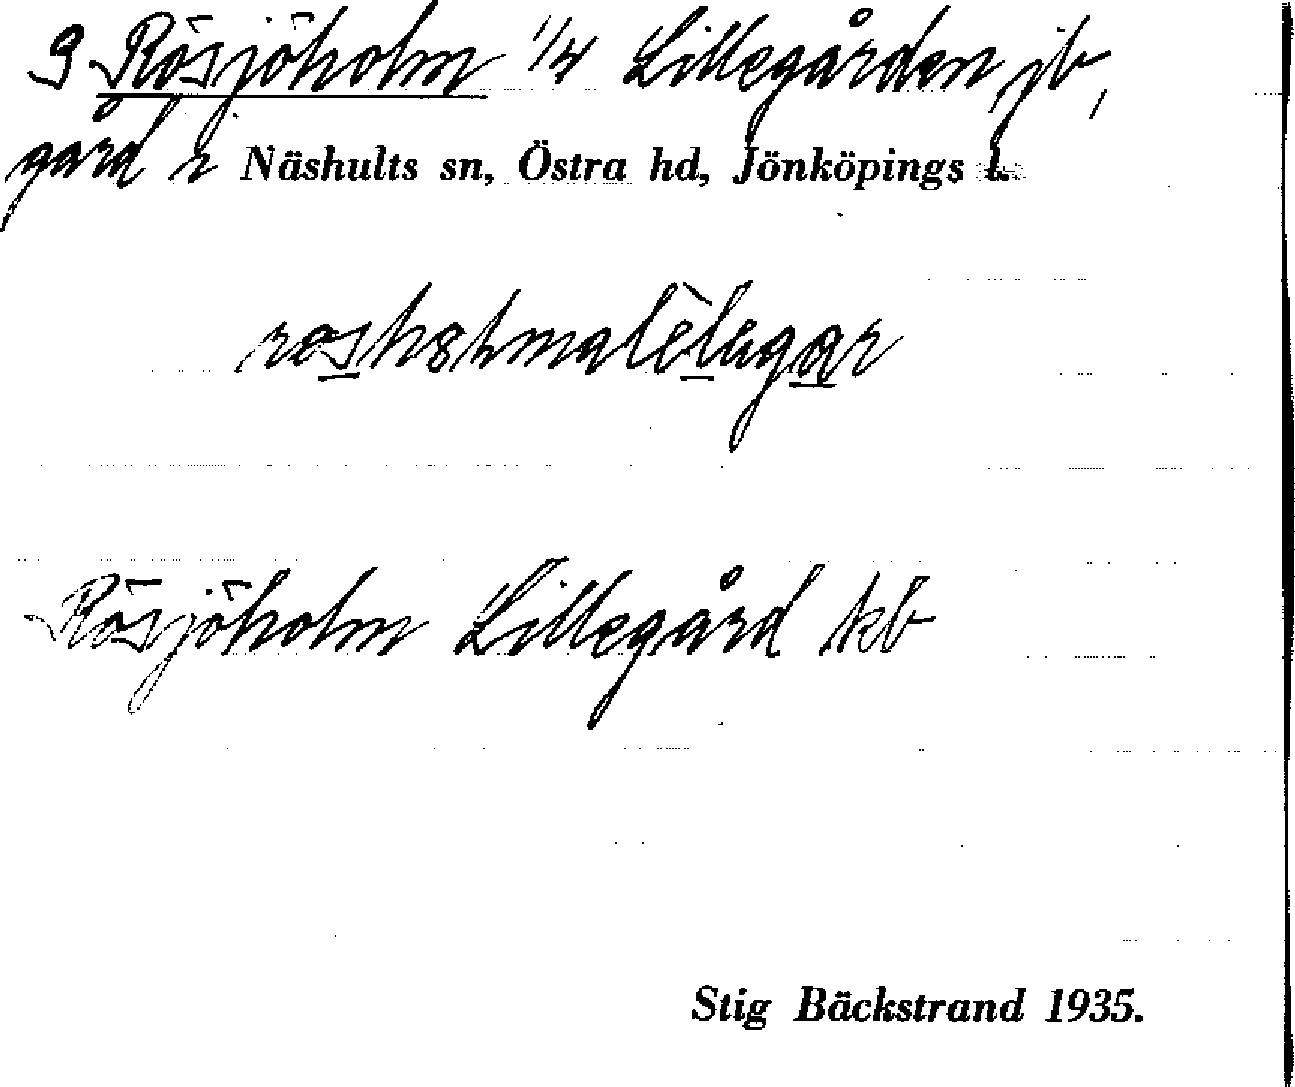 9 Rösjöholm 1/4 Lillegården jb,
gård r Näshults sn, Östra hd, Jönköpings l.
Rösjöholm Lillegård kb
Stig Bäckstrand 1935.